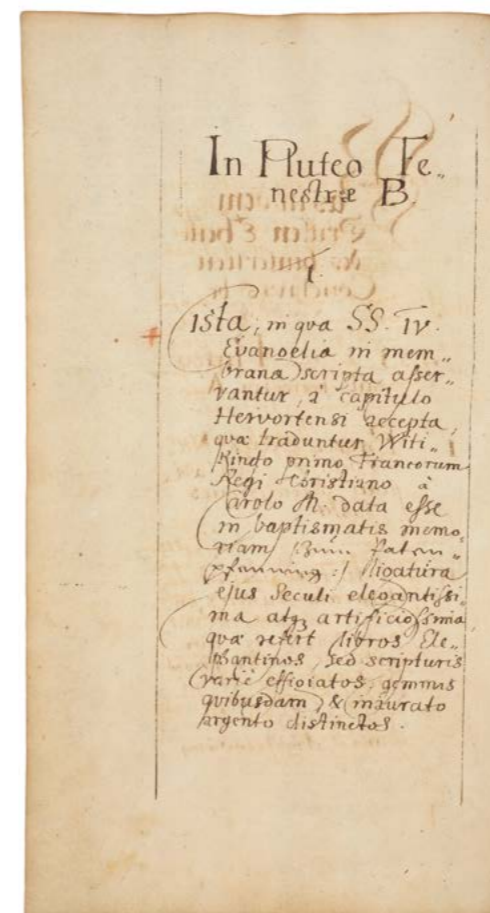 In Pluteo Fe„
nestræ B.
1.
Cista, in qva SS. IV.
Evangelia in mem„
brana scripta asser„
vantur, à capitulo
Hervortensi recepta,
qvæ traduntur Witi„
Kindo primo Francorum
Regi Christiano à
Carolo M. data esse
in baptismatis memo„
riam /: Zum Paten„
pfenning :/ ligatura
ejus Seculi elegantissi„
ma atq; artificiosissima
qvæ refert libros Ele„
phantinos, sed scripturis
varie effigiatos, gemmis
qvibusdam, & inaurato
argento distinctos.